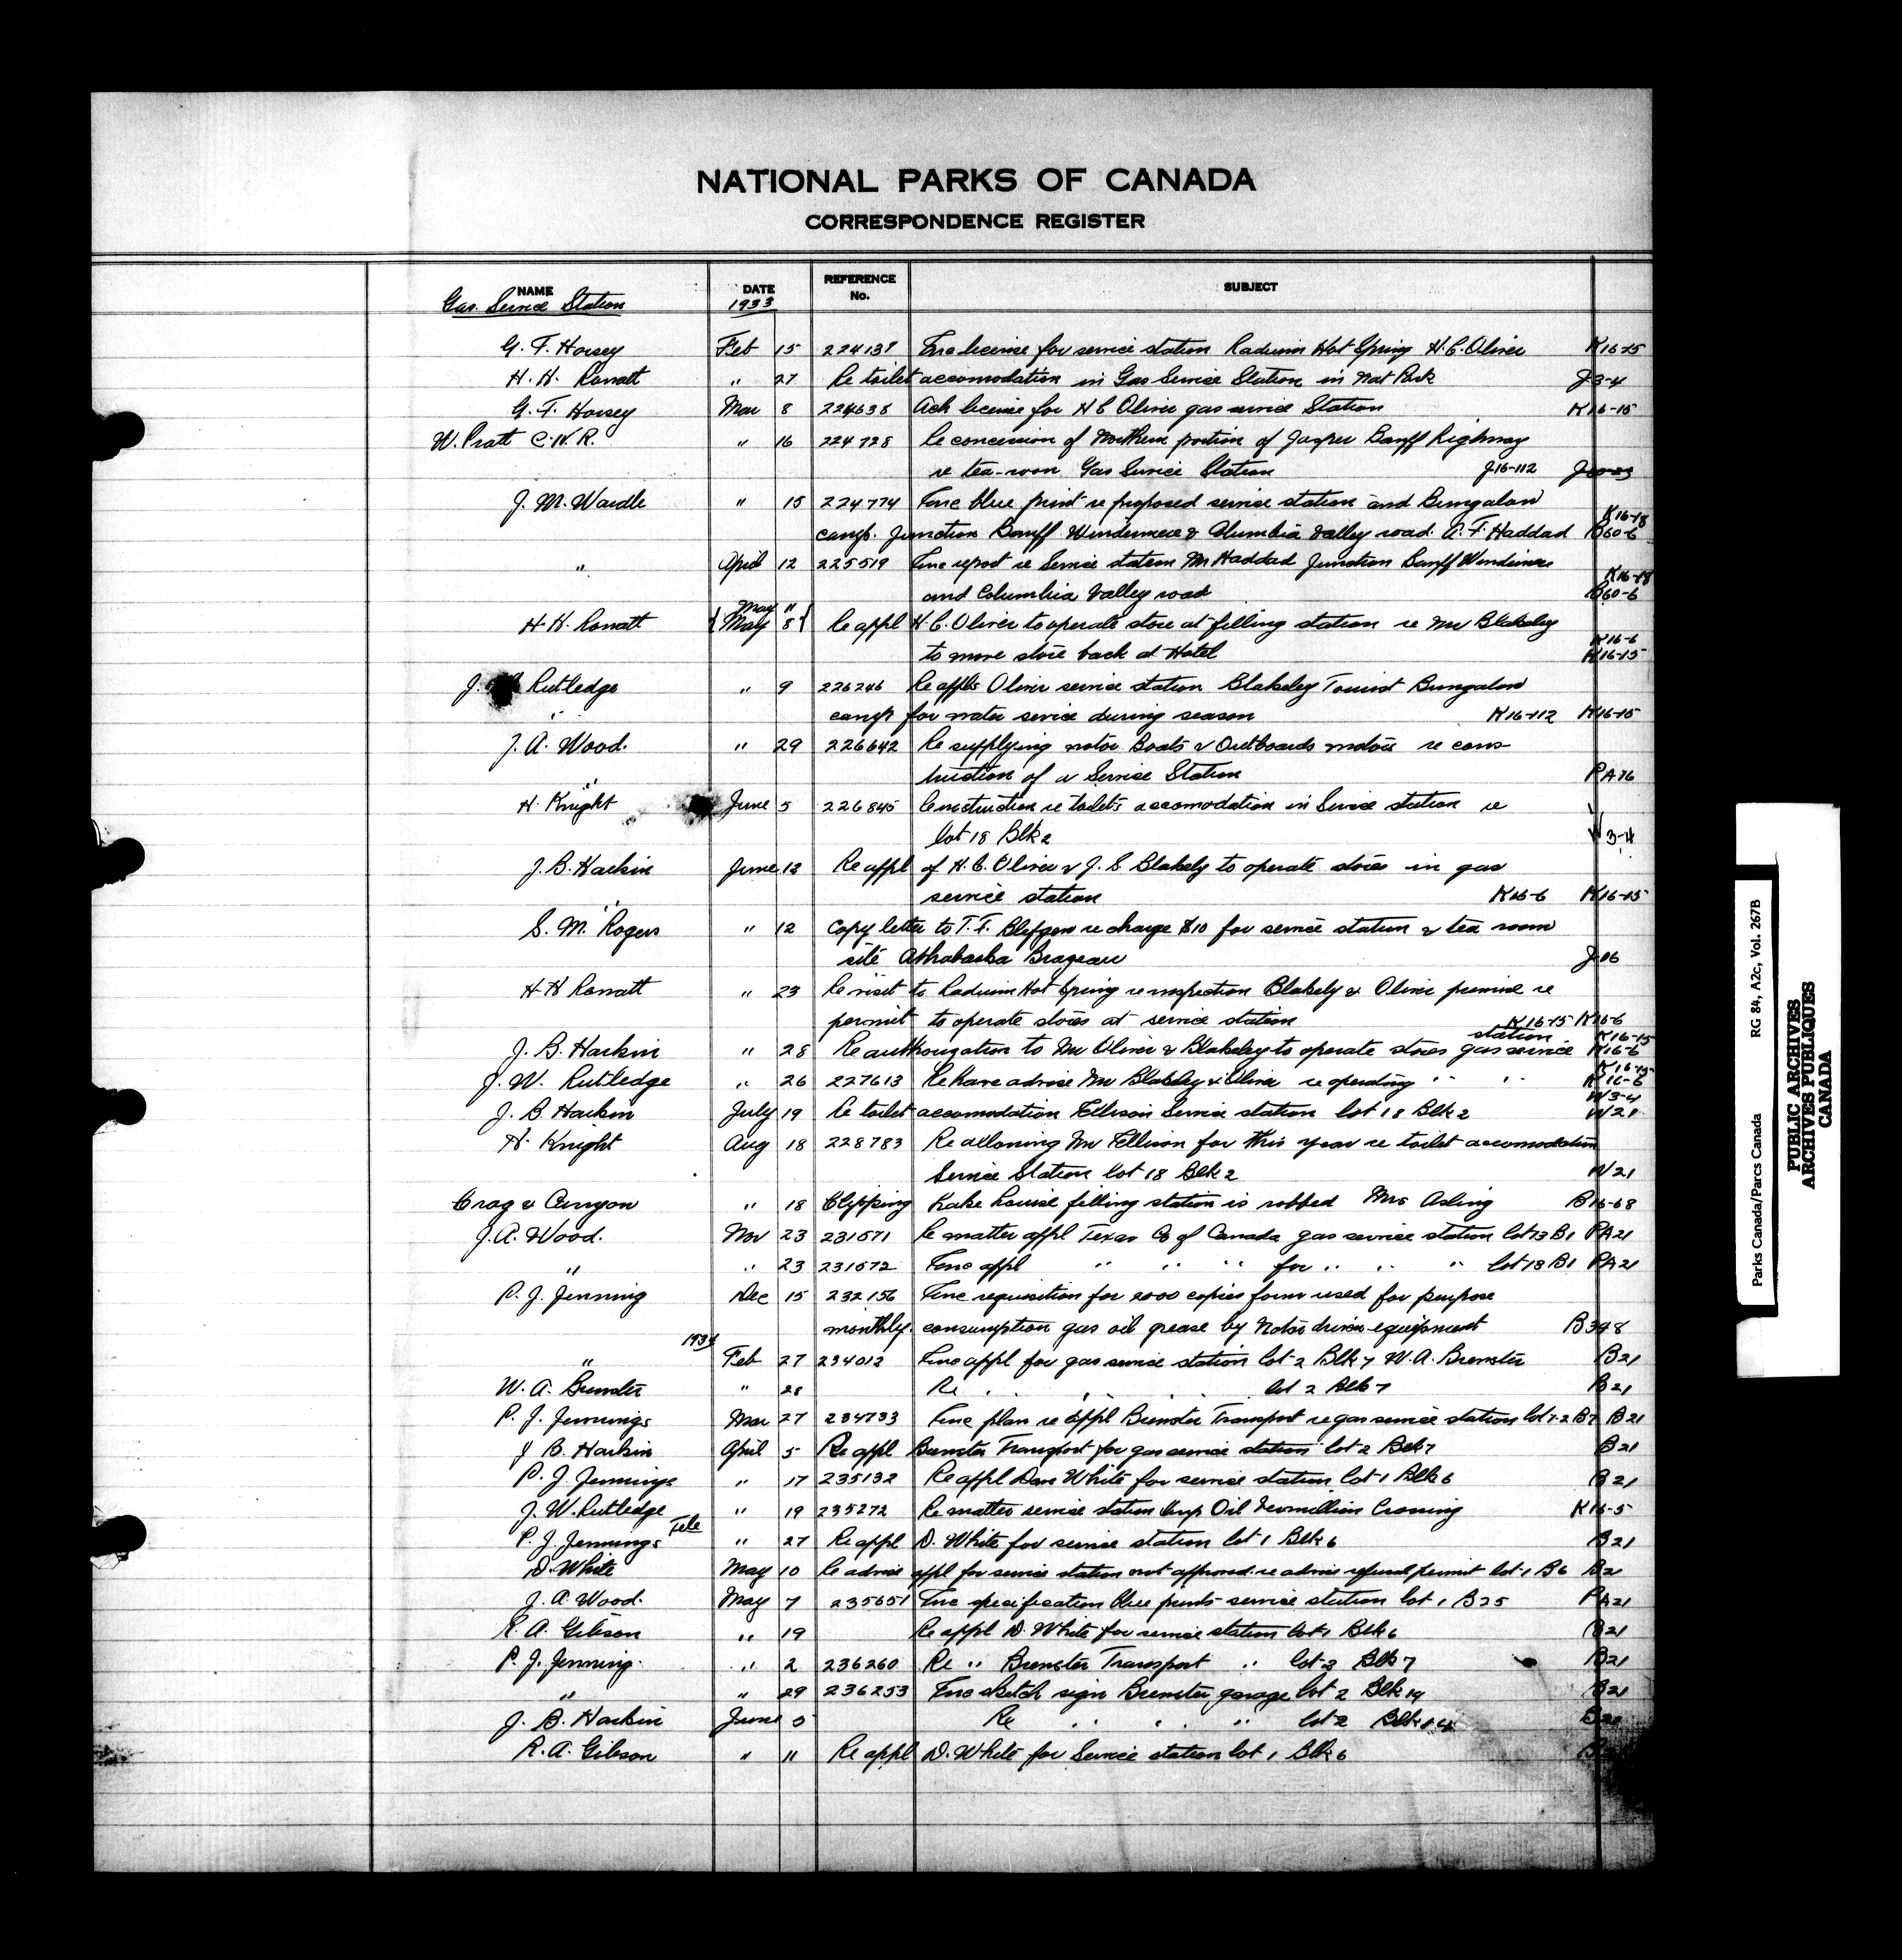 NATIONAL PARKS OF CANADA
CORRESPONDENCE REGISTER
NAME DATE REFERENCE No. SUBJECT
Gas. Service Station 1933
G. F. Horsey Feb 15 Enc license for service station Radium Hot Spring H. C. Oliver K16-15
H. H. " 27 Re toilet accomodation in Gas Service Station in Nat Park J3-4
G. F. Horsey Mar 8 224638 Ack license for H C Oliver gas service Station K16-15
W. Pratt C.N.R. " 16 224728 Re concession of Northern portion of Jasper Banff Highway
re tea-room Gas Service Station J16-112
J. M. Wardle " 15 224774 Enc blue print re proposed service station and Bungalow K16-18
camp. Junction Banff Windermere & Columbia Valley road. A. F. Haddad B60-6
" April 12 225519 Enc report re Service station Mr Haddad Junction Banff Windermere K16-18
and Columbia Valley road B60-6
May 11
H. H. May 8 Re appl H. C. Oliver to operate store at filling station re Mr Blakeley K16-6
to move store back at Hotel K16-15
J. Rutledge " 9 226246 Re appl Oliver service station Blakeley Tourist Bungalow
" camp for water service during season K16-112 K16-15
J. A. Wood. " 29 226642 Re supplying motor Boats & Outboards motors re cons-
truction of a Service Station PA76
H. Knight June 5 226845 Construction re toilets accomodation in Service station re
lot 18 Blk 2 W3-4
J. B. Harkin June 12 Re appl of H. C. Oliver & J. S. Blakely to operate stores in gas
service station K16-6 K16-15
S. M. Rogers " 12 Copy letter to T. F. re charge $10 for service station & tea room
site Athabaska Brazeau J16
H H " 23 Re visit to Radium Hot Spring re inspection Blakely & Oliver premise re
permit to operate stores at service station K16-15 K16-6
station K16-15
J. B. Harkin " 28 Re authorization to Mr Oliver & Blakeley to operate stores gas service K16-6
K16-15
J. W. Rutledge " 26 227613 Re have advise Mr Blakeley & Oliver re operating " " K16-6
W3-4
J. B. Harkin July 19 Re toilet accomodation Ellison Service station lot 18 Blk 2 W21
H. Knight Aug 18 228783 Re allowing Mr Ellison for this year re toilet accomodation
Service Station lot 18 Blk 2 W21
Crag & Canyon " 18 Clipping Lake Louise filling station is robbed Mrs Asling B16-68
J. A. Wood. Nov 23 231571 Re matter appl Texas Co of Canada gas service station lot 13 B1 PA21
" " 23 231572 Enc appl " " " for " " " lot 13 B1 PA21
P. J. Jenning Dec 15 232156 Enc requisition for 2000 copies form used for purpose
monthly consumption gas oil grease by Motor driven equipment B348
1934
" Feb 27 234012 Enc appl for gas service station lot 2 Blk 7 W. A. Brewster B21
W. A. Brewster " 28 Re " " lot 2 Blk 7 B21
P. J. Jennings Mar 27 234733 Enc plan re appl Brewster Transport re gas service station lot 1-2 B7 B21
J B. Harkin April 5 Re appl Brewster Transport for gas service station lot 2 Blk 7 B21
P. J. Jennings " 17 235132 Re appl Dave White for service station lot 1 Blk 6 B21
J. W. Rutledge " 19 235272 Re matter service station Imp Oil Vermillion Crossing K16-5
P. J. Jennings Tele " 27 Re appl D. White for service station lot 1 Blk 6 B21
D. White May 10 Re advice appl for service station not approved re advise refund permit lot 1 B6 B21
J. A Wood. May 7 235651 Enc specification blue prints service station lot 1 B25 PA21
R. A. Gibson " 19 Re appl D. White for service station lot 1 Blk 6 B21
P. J. Jenning. " 2 236260 Re " Brewster Transport " lot 2 Blk 7 B21
" " 29 236253 Enc sketch sign Brewster garage lot 2 Blk 14 B21
J. B. Harkin June 5 Re " " " lot 2 Blk 14
R. A. Gibson " 11 Re appl D. White for Service station lot 1 Blk 6
Parks Canada/Parcs Canada RG 84, A2c, Vol. 267B
PUBLIC ARCHIVES
ARCHIVES PUBLIQUES
CANADA